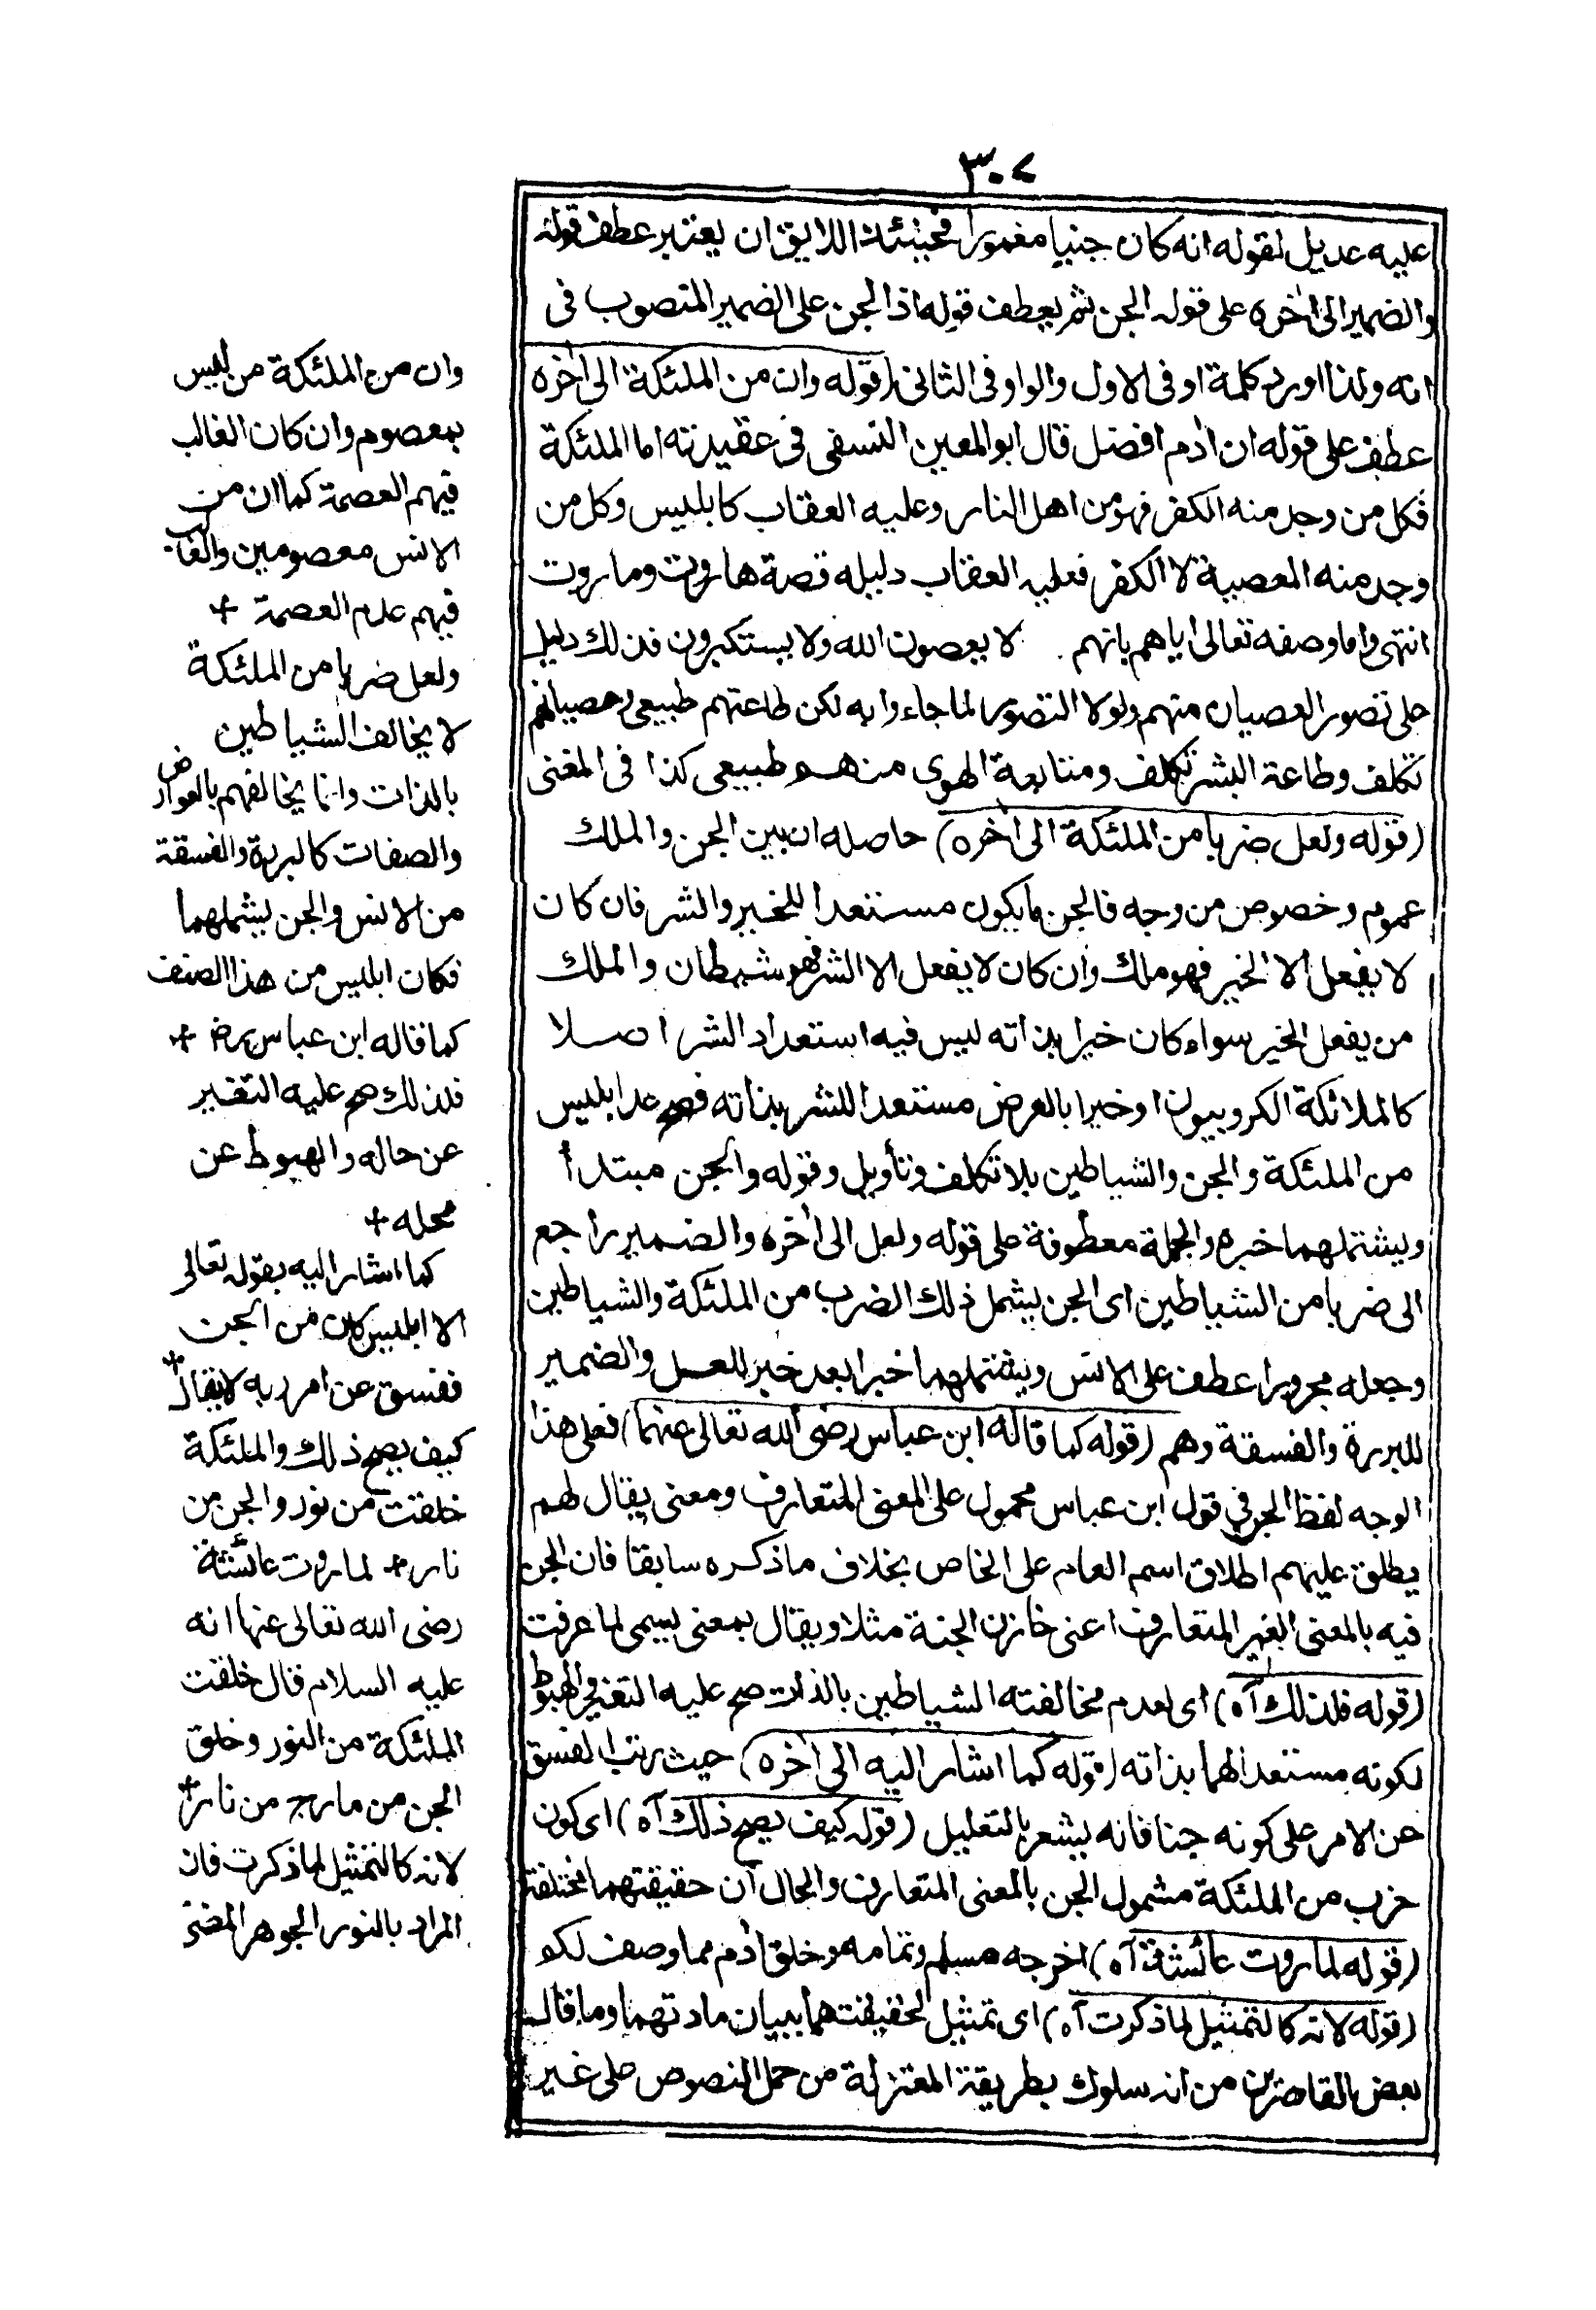 ٣٠٧
عليه عديل لقوله انه كان جنيا مغمورا فحينئذ اللايق ان يعتبر عطف قوله
والضمير الى اخره على قوله الجن ثم يعطف قوله اذ الجن على الضمير المنصوب فى
انه ولذا اورد كلمة او فى الاول والواو فى الثانى (قوله وان من الملئكة الى اخره
عطف على قوله ان ادم افضل قال ابو المعين النسفى فى عقيدته اما الملئكة
فكل من وجد منه الكفر فهو من اهل النار وعليه العقاب كابليس وكل من
وجد منه المعصية لا الكفر فعليه العقاب دليله قصة هاروت وماروت
انتهى واما وصفه تعالى اياهم بانهم لا يعصون الله ولا يستكبرون فذلك دليل
على تصور العصيان منهم ولولا التصور لما جاء وا به لكن طاعتهم طبيعى وعصيانهم
تكلف وطاعة البشر تكلف ومتابعة الهوى منهم طبيعى كذا فى المغنى
(قوله ولعل ضربا من الملئكة الى اخره) حاصله ان بين الجن والملك
عموم وخصوص من وجه فالجن ما يكون مستعدا للخير والشر فان كان
لا يفعل الا الخير فهو ملك وان كان لا يفعل الا الشر فهو شيطان والملك
من يفعل الخير سواء كان خيرا بذاته ليس فيه استعداد الشر اصلا
كالملائكة الكروبيون او خيرا بالعرض مستعدا للشر بذاته فصح عد ابليس
من الملئكة والجن والشياطين بلا تكلف وتأويل وقوله والجن مبتدأ
ويشتملهما خبره والجملة معطوفة على قوله ولعل الى اخره والضمير راجع
الى ضربا من الشياطين اى الجن يشمل ذلك الضرب من الملئكة والشياطين
وجعله مجرورا عطف على الانس ويشتملهما خبرا بعد خبر للعل والضمير
للبررة والفسقة وهم (قوله كما قاله ابن عباس رضى الله تعالى عنهما) فعلى هذا
الوجه لفظ الجن فى قول ابن عباس محمول على المعنى المتعارف ومعنى يقال لهم
يطلق عليهم اطلاق اسم العام على الخاص بخلاف ما ذكره سابقا فان الجن
فيه بالمعنى الغير المتعارف اعنى خازن الجنة مثلا ويقال بمعنى يسمى لما عرفت
(قوله فلذلك آه) اى لعدم مخالفته الشياطين بالذات صح عليه التغير والهبوط
لكونه مستعدا لهما بذاته (قوله كما اشار اليه الى اخره) حيث رتب الفسق
عن الامر على كونه جنا فانه يشعر بالتعليل (قوله كيف يصح ذلك آه) اى كون
ضرب من الملئكة مشمول الجن بالمعنى المتعارف والحال ان حقيقتهما مختلفة
(قوله لما روت عائشة آه) اخرجه مسلم وتمامه وخلق ادم مما وصف لكم
(قوله لانه كالتمثيل لما ذكرت آه) اى تمثيل لحقيقتهما ببيان مادتهما وما قال
بعض القاصرين من انه سلوك بطريقة المعتزلة من حمل النصوص على غير
وان من الملئكة من ليس
بمعصوم وان كان الغالب
فيهم العصمة كما ان من
الانس معصومين والغالب
فيهم عدم العصمة +
ولعل ضربا من الملئكة
لا يخالف الشياطين
بالذات وانما يخالفهم بالعوارض
والصفات كالبررة والفسقة
من الانس والجن يشملهما
فكان ابليس من هذا الصنف
كما قاله ابن عباس رض +
فلذلك صح عليه التغير
عن حاله والهبوط عن
محله +
كما اشار اليه بقوله تعالى
الا ابليس كان من الجن
ففسق عن امر ربه لا يقال +
كيف يصح ذلك والملئكة
خلقت من نور والجن من
نار + لما روت عائشة
رضى الله تعالى عنها انه
عليه السلام قال خلقت
الملئكة من النور وخلق
الجن من مارج من نار +
لانه كالتمثيل لما ذكرت فان
المراد بالنور الجوهر المضئ